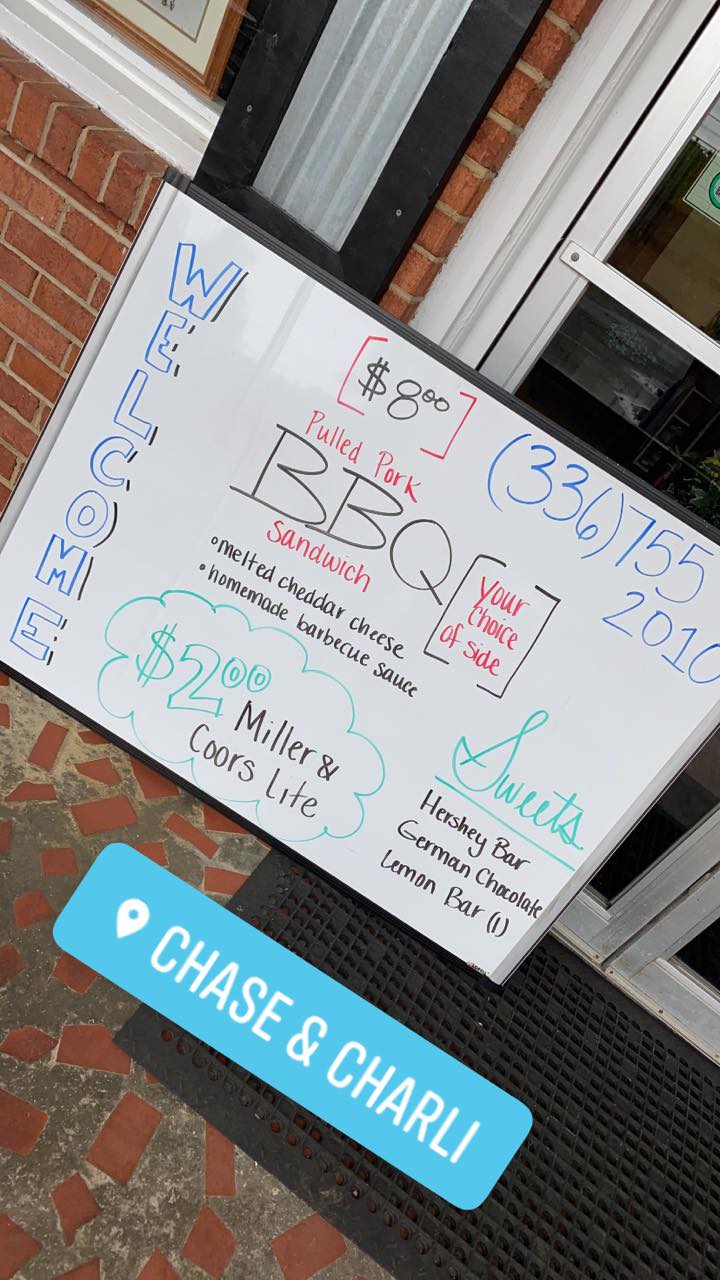 WELCOME
[$8.00]
Pulled Pork
BBQ
Sandwich
•melted cheddar cheese
•homemade barbecue sauce
[Your
Choice
of side]
(336)755
2010
$2.00
Miller &
Coors Lite
Sweets
Hershey Bar
German Chocolate
Lemon Bar (1)
CHASE & CHARLI